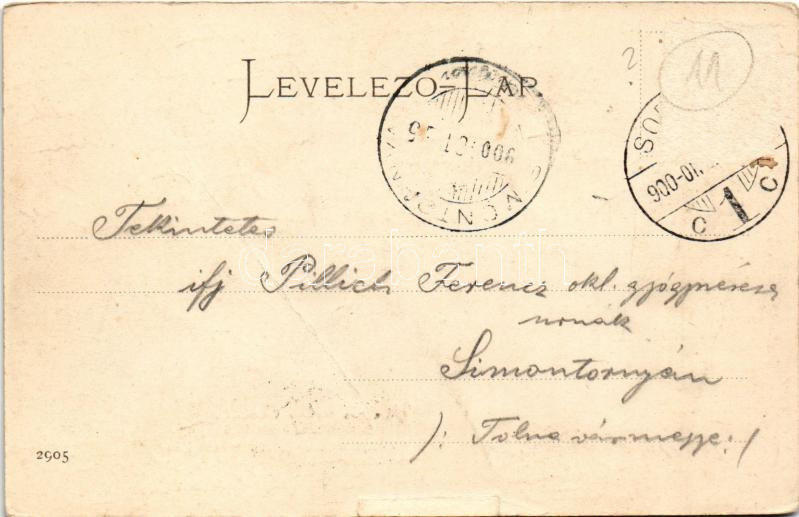 LEVELEZŐ-LAP
?
11
SIMONTORNYA
SOP
900-01
C 1 C
Tekintetes
ifj Pillich Ferencz okl. gyógyszerész
urnák
Simontornyán
): Tolna vármegye :(
2905
darabanth